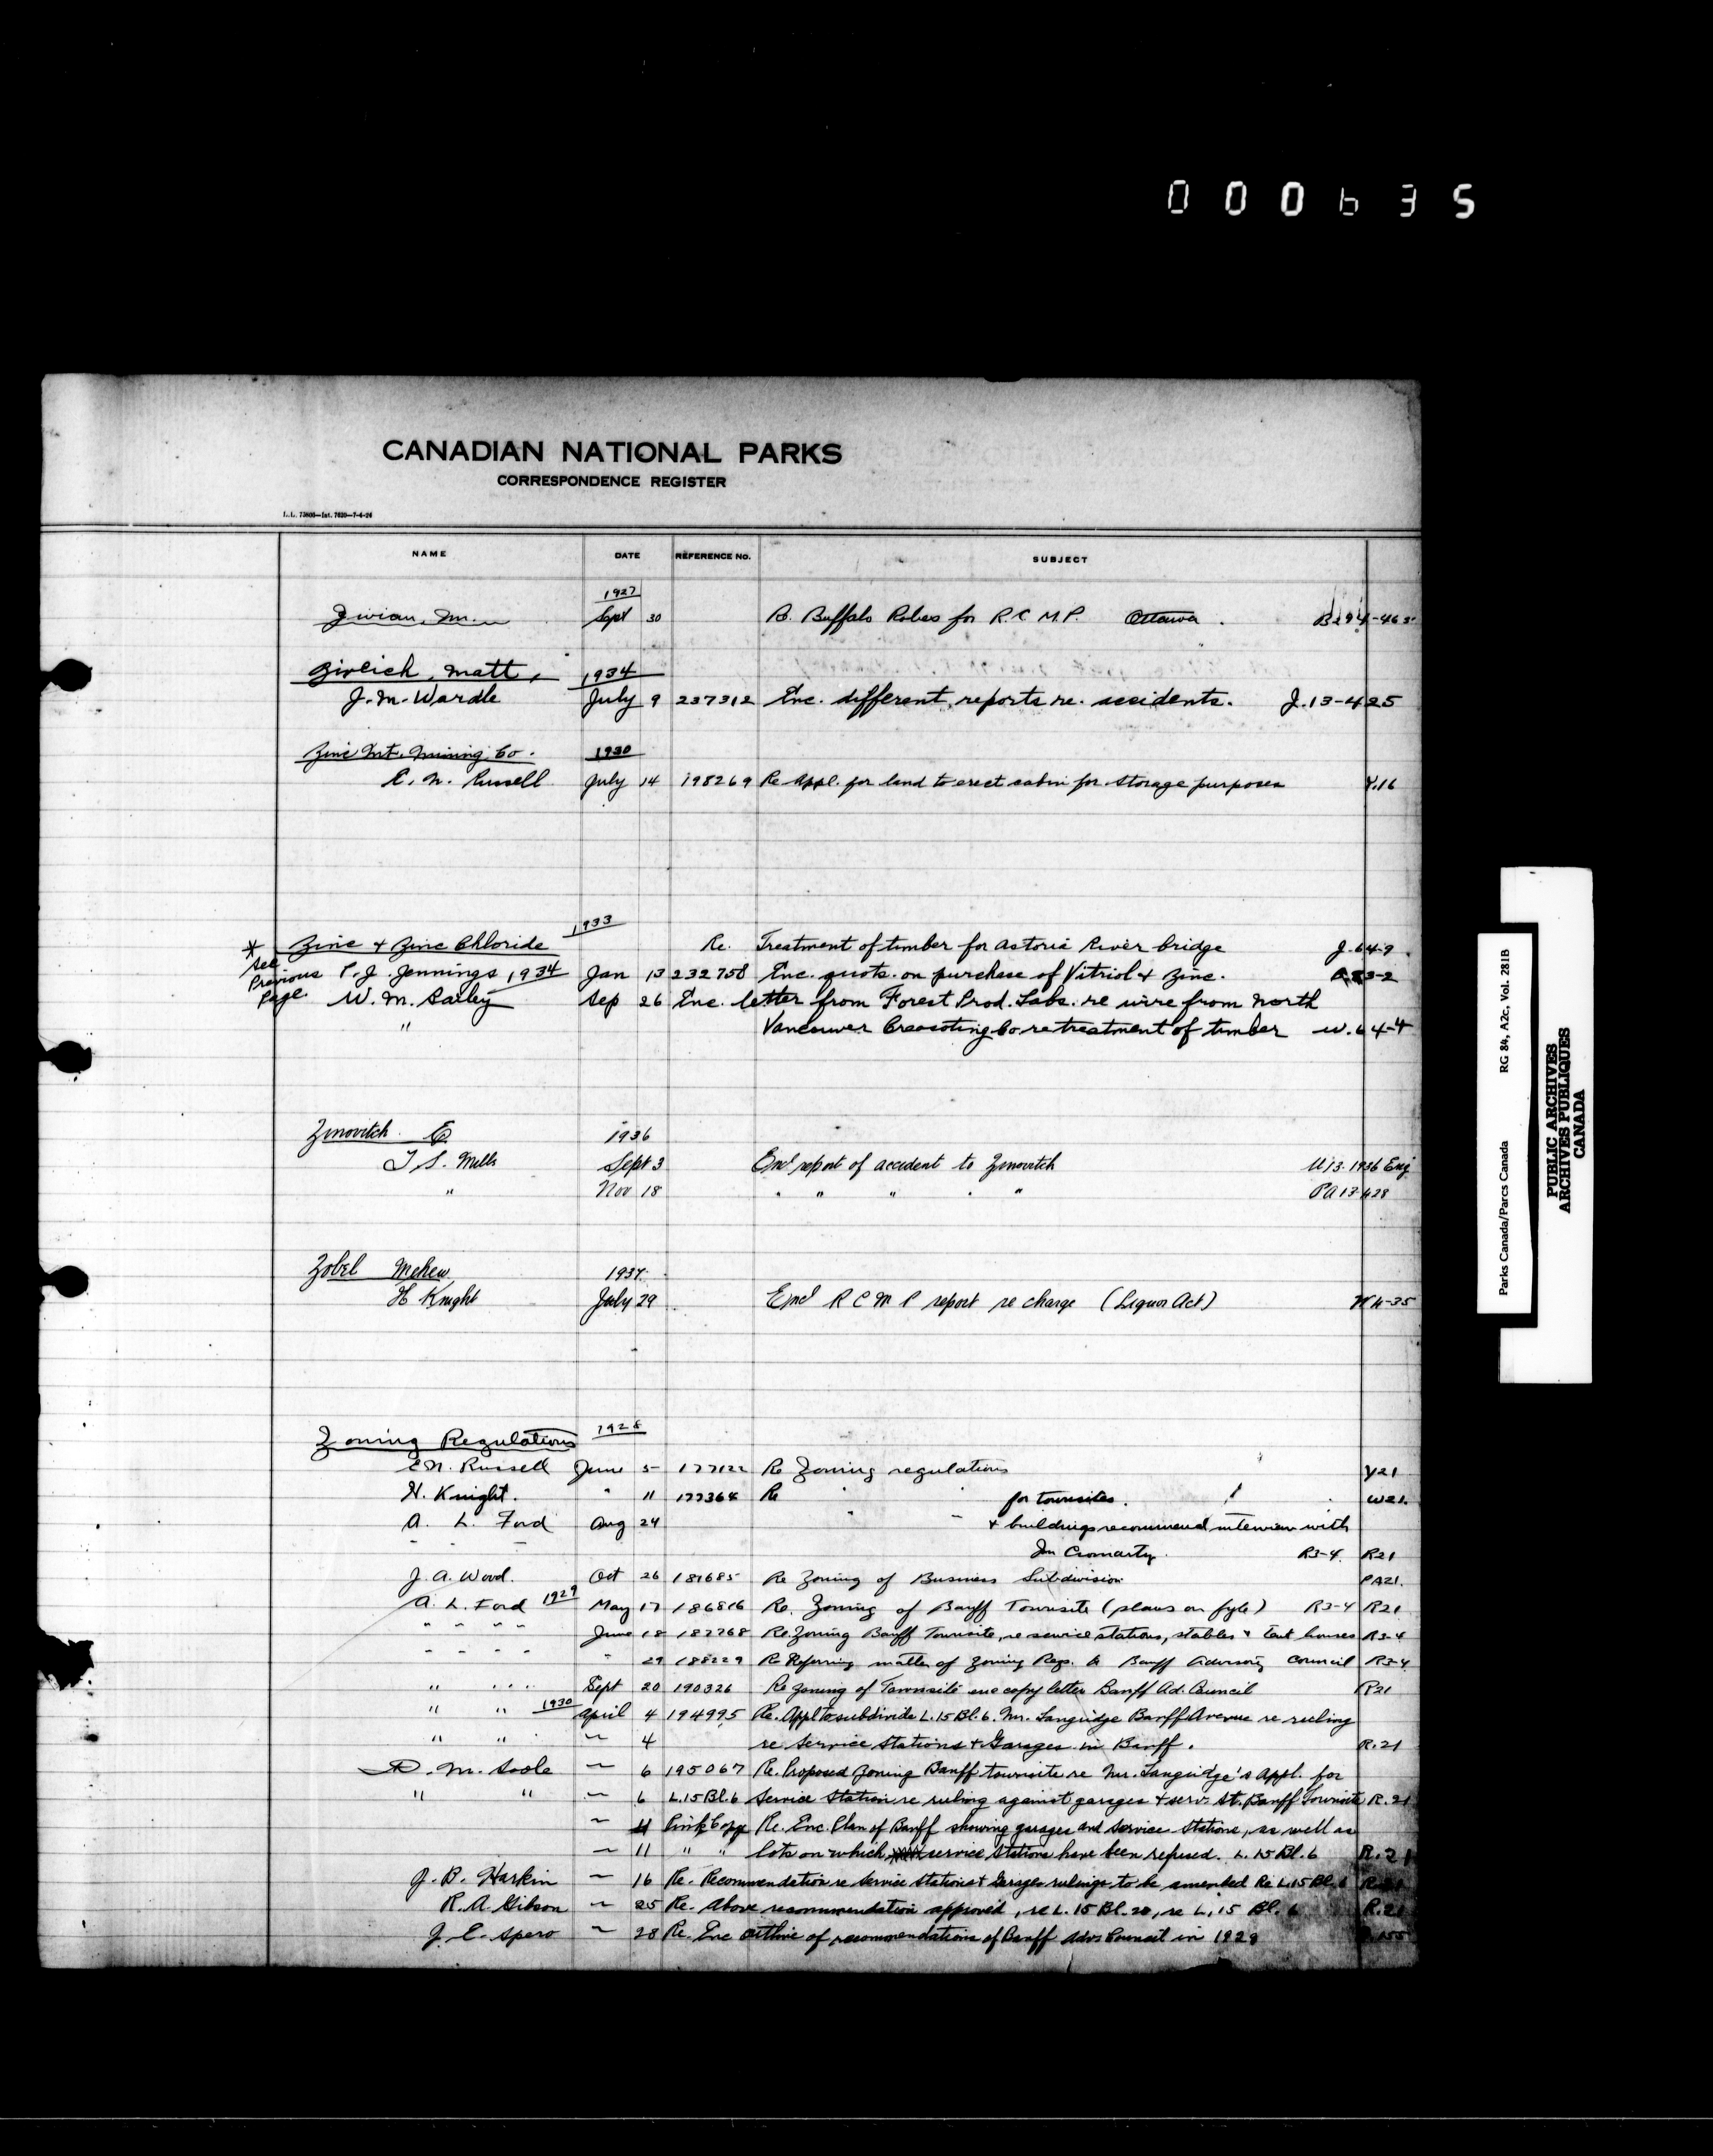 000635
CANADIAN NATIONAL PARKS
CORRESPONDENCE REGISTER
NAME DATE REFERENCE No. SUBJECT
1927
Zivian, M. Sept 30 Re. Buffalo Robes for R.C.M.P. Ottawa.
Zivlich, Matt, 1934
J. M. Wardle July 9 237312 Enc. different reports re. accidents. J.13-425
Zinc Mt. Mining Co. 1930
E. N. Russell July 14 198269 Re Appl. for land to erect cabin for storage purposes Y.16
1933
* Zinc & Zinc Chloride Re. Treatment of timber for Astoria River bridge J.64-9
See Previous Page. P. J. Jennings 1934 Jan 13 232758 Enc. quots. on purchase of Vitriol & Zinc.
W. M. Bailey Sep 26 Enc. letter from Forest Prod. Labs. re wire from North
" Vancouver Creosoting Co re treatment of timber W.64-4
Zinovitch E 1936
T S. Mills Sept 3 Encl report of accident to Zinovitch U13-1936 Eng
" Nov 18 " " " " " PA 13-428
Zobel Mehew 1937
H Knight July 29 Encl R C M P report re charge (Liquor Act)
Zoning Regulations 1928
E N. Russell June 5 177122 Re Zoning regulations Y21
H. Knight. " 11 177364 Re " " for townsites. W21.
A. L. Ford Aug 24 " " & buildings recommend interview with
" " " Cromarty. R3-4. R21
J. A. Wood. Oct 26 181685 Re Zoning of Business Subdivision PA21.
A. L. Ford 1929 May 17 186816 Re. Zoning of Banff Townsite (plans on fyle) R3-4 R21
" " " " June 18 187768 Re. Zoning Banff Townsite, re service stations, stables & tent houses R3-4
" " " " " 29 188229 Re Referring matter of Zoning Regs. to Banff Advisory Council R3-4
" " " " Sept 20 190326 Re Zoning of Townsite enc copy letter Banff Ad. Council R21
" " 1930 April 4 194995 Re. Appl to subdivide L.15 Bl.6. Mr. Languidge Banff Avenue re ruling
" " ~ 4 re Service Stations & Garages in Banff. R.21
D. M. Soole ~ 6 195067 Re. Proposed Zoning Banff townsite re Mr. Languidge's Appl. for
" " ~ 6 L.15 Bl.6 Service Station re ruling against garages & serv. St. Banff Townsite R.21
~ 11 Pink Copy Re. Enc. Plan of Banff showing garages and Service Stations, as well as
~ 11 " " lots on which service stations have been refused. L. 15 Bl. 6 R.21
J. B. Harkin ~ 16 Re. Recommendation re Service Stations & Garages rulings to be amended Re L.15 Bl.6 R.21
R. A. Gibson ~ 25 Re. Above recommendation approved, re L. 15 Bl. 20, re L. 15 Bl. 6 R.21
J. E. Spero ~ 28 Re. Enc outline of recommendations of Banff Adv. Council in 1929
Parks Canada/Parcs Canada RG 84, A2c, Vol. 281B
PUBLIC ARCHIVES
ARCHIVES PUBLIQUES
CANADA